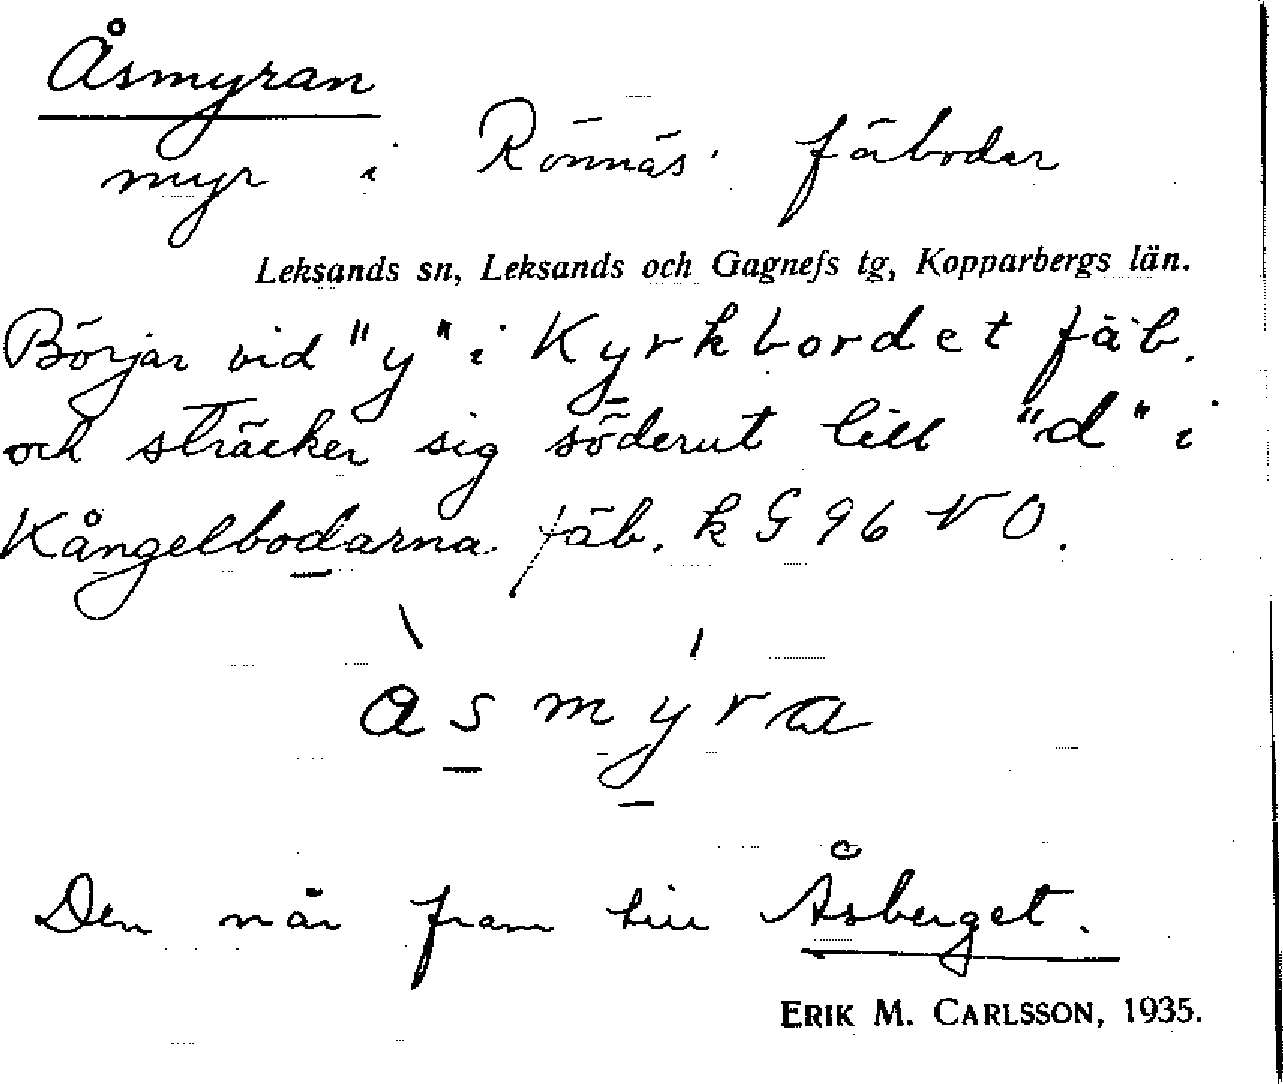 Åsmyran
myr i Rönnäs fäboder
Leksands sn, Leksands och Gagnefs tg, Kopparbergs län.
Börjar vid "y" i Kyrkbordet fäb.
och sträcker sig söderut till "d" i
Kångelbodarna fäb. k G 96 NO.
àsmýra
Den når fram till Åsberget.
ERIK M. CARLSSON, 1935.